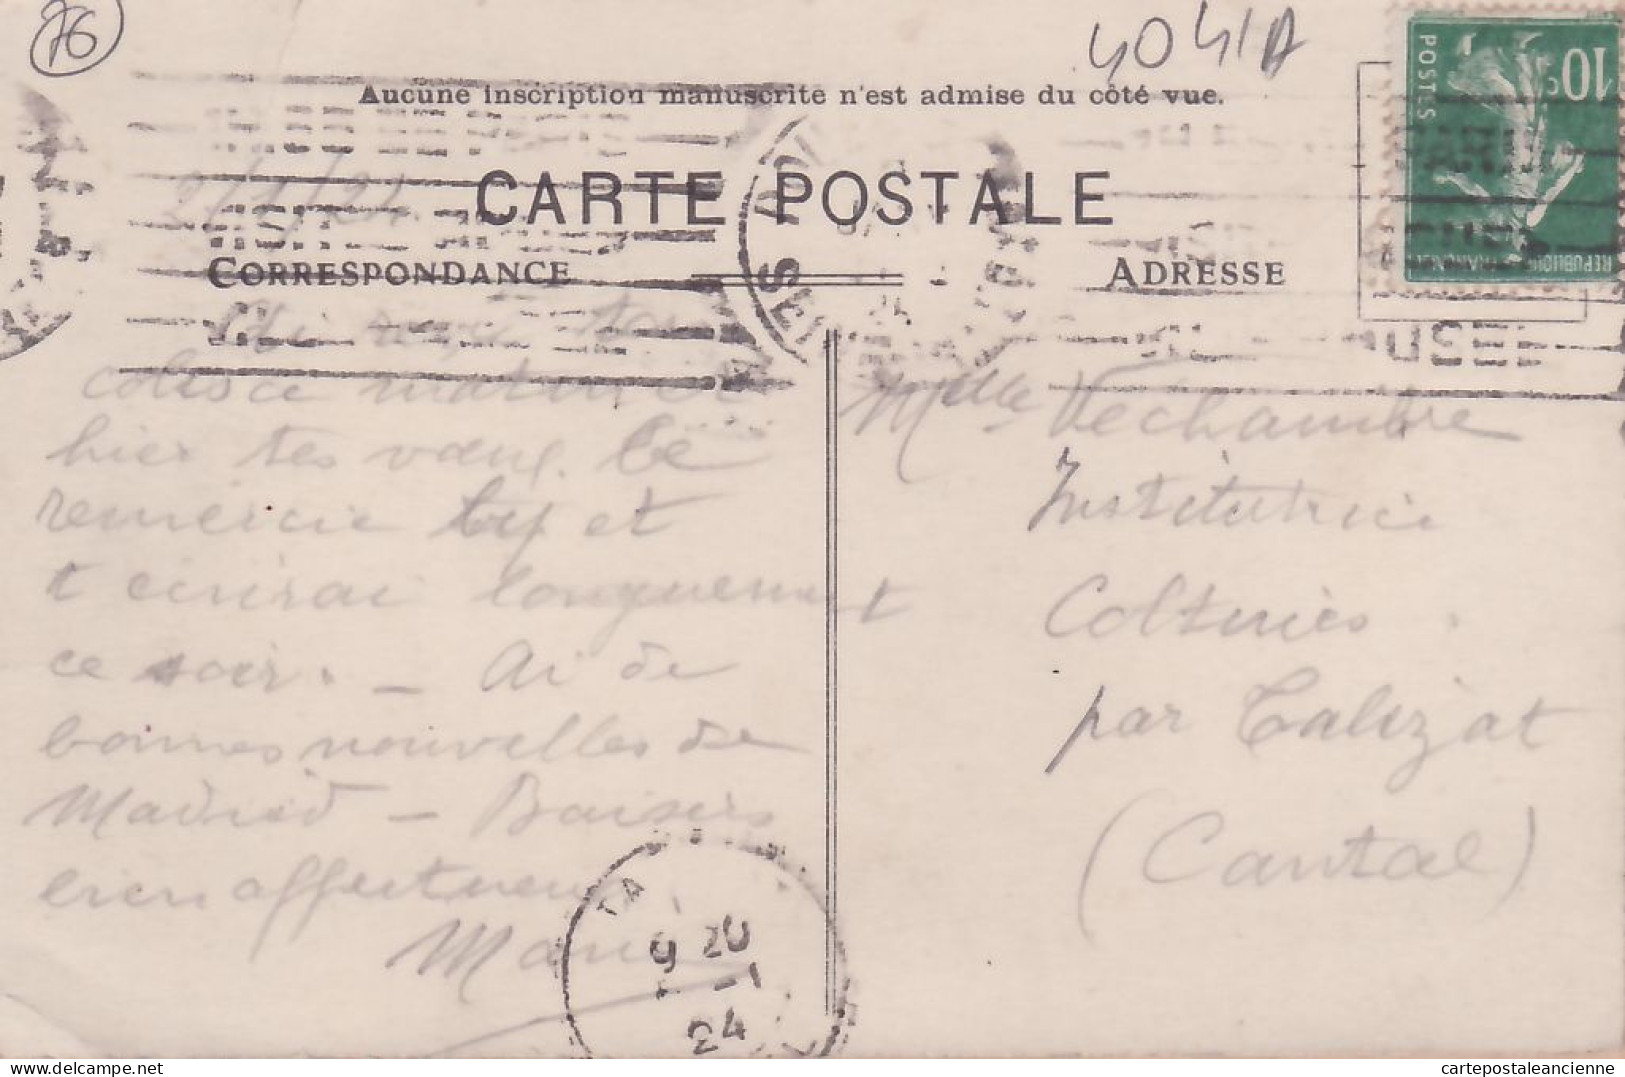 76
4041A
10c
POSTES
REPUBLIQUE FRANCAISE
Aucune inscription manuscrite n'est admise du côté vue.
CARTE POSTALE
CORRESPONDANCE
ADRESSE
2/1/24
colis ce matin et
hier tes vœux. Te
remercie bcp et
t'écrirai longuement
ce soir. — Ai de
bonnes nouvelles de
Madrid — Baisers
bien affectueux
Marie
Melle Vechambre
Institutrice
Coltines
par Talizat
(Cantal)
TA
9 20
-1
24
cartepostaleancienne